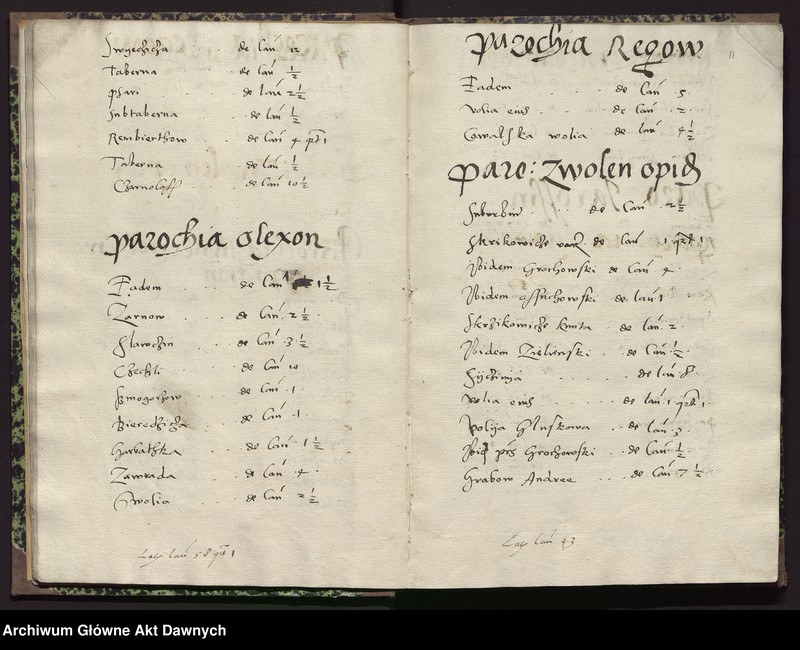 Swyeczicza de lan 12
Taberna de lan ½
Psari de lan 2½
Subtaberna de lan ½
Rembierthow de lan 4 qrt 1
Taberna de lan ½
Czarnolass de lan 10½
parochia Olexon
Eadem de lan 1½
Zarnow de lan 2½
Slawczin de lan 3½
Czechli de lan 10
de lan 1
Bieredzicza de lan 1
Garbathka de lan 1½
Zawada de lan 4
Swolia de lan 2½
lan 58 qrt 1
11
parochia Regow
Eadem de lan 5
Volia eius de lan 2
Cowalska wolia de lan 4½
paro: Zwolen opid
Suburbiu de lan 2½
Skrikowicze de lan 1 qrt 1
Ibidem Grochowski de lan 4
Ibidem de lan 1
Skrzikowicze de lan 2
Ibidem Zielenski de lan ½
Syczinya de lan 8
Volia eius de lan 1 qrt 1
Volija Gluskowa de lan 3
Ibid Grochowski de lan ½
Grabow Andree de lan 7½
lan 43
Archiwum Główne Akt Dawnych